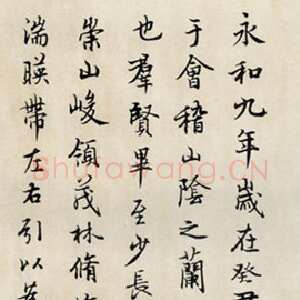 永和九年歲在癸
于會稽山陰之蘭
也羣賢畢至少長
崇山峻領茂林脩
湍暎帶左右引以為
Shufawang.CN